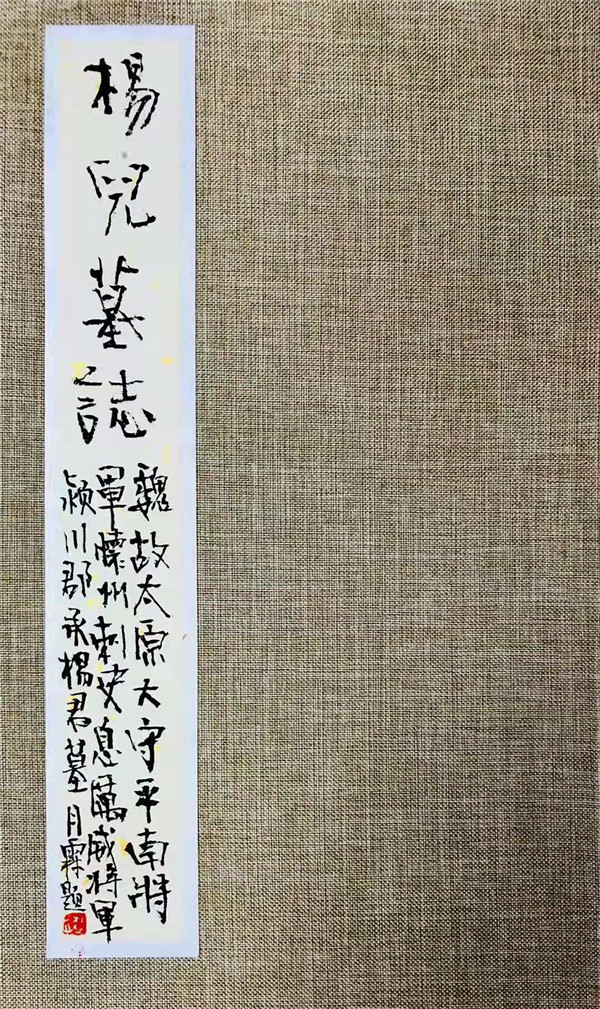 楊兒墓誌
魏故太原大守平南將
軍懷州刺史息厲威將軍
潁川郡承楊君墓 月霖題